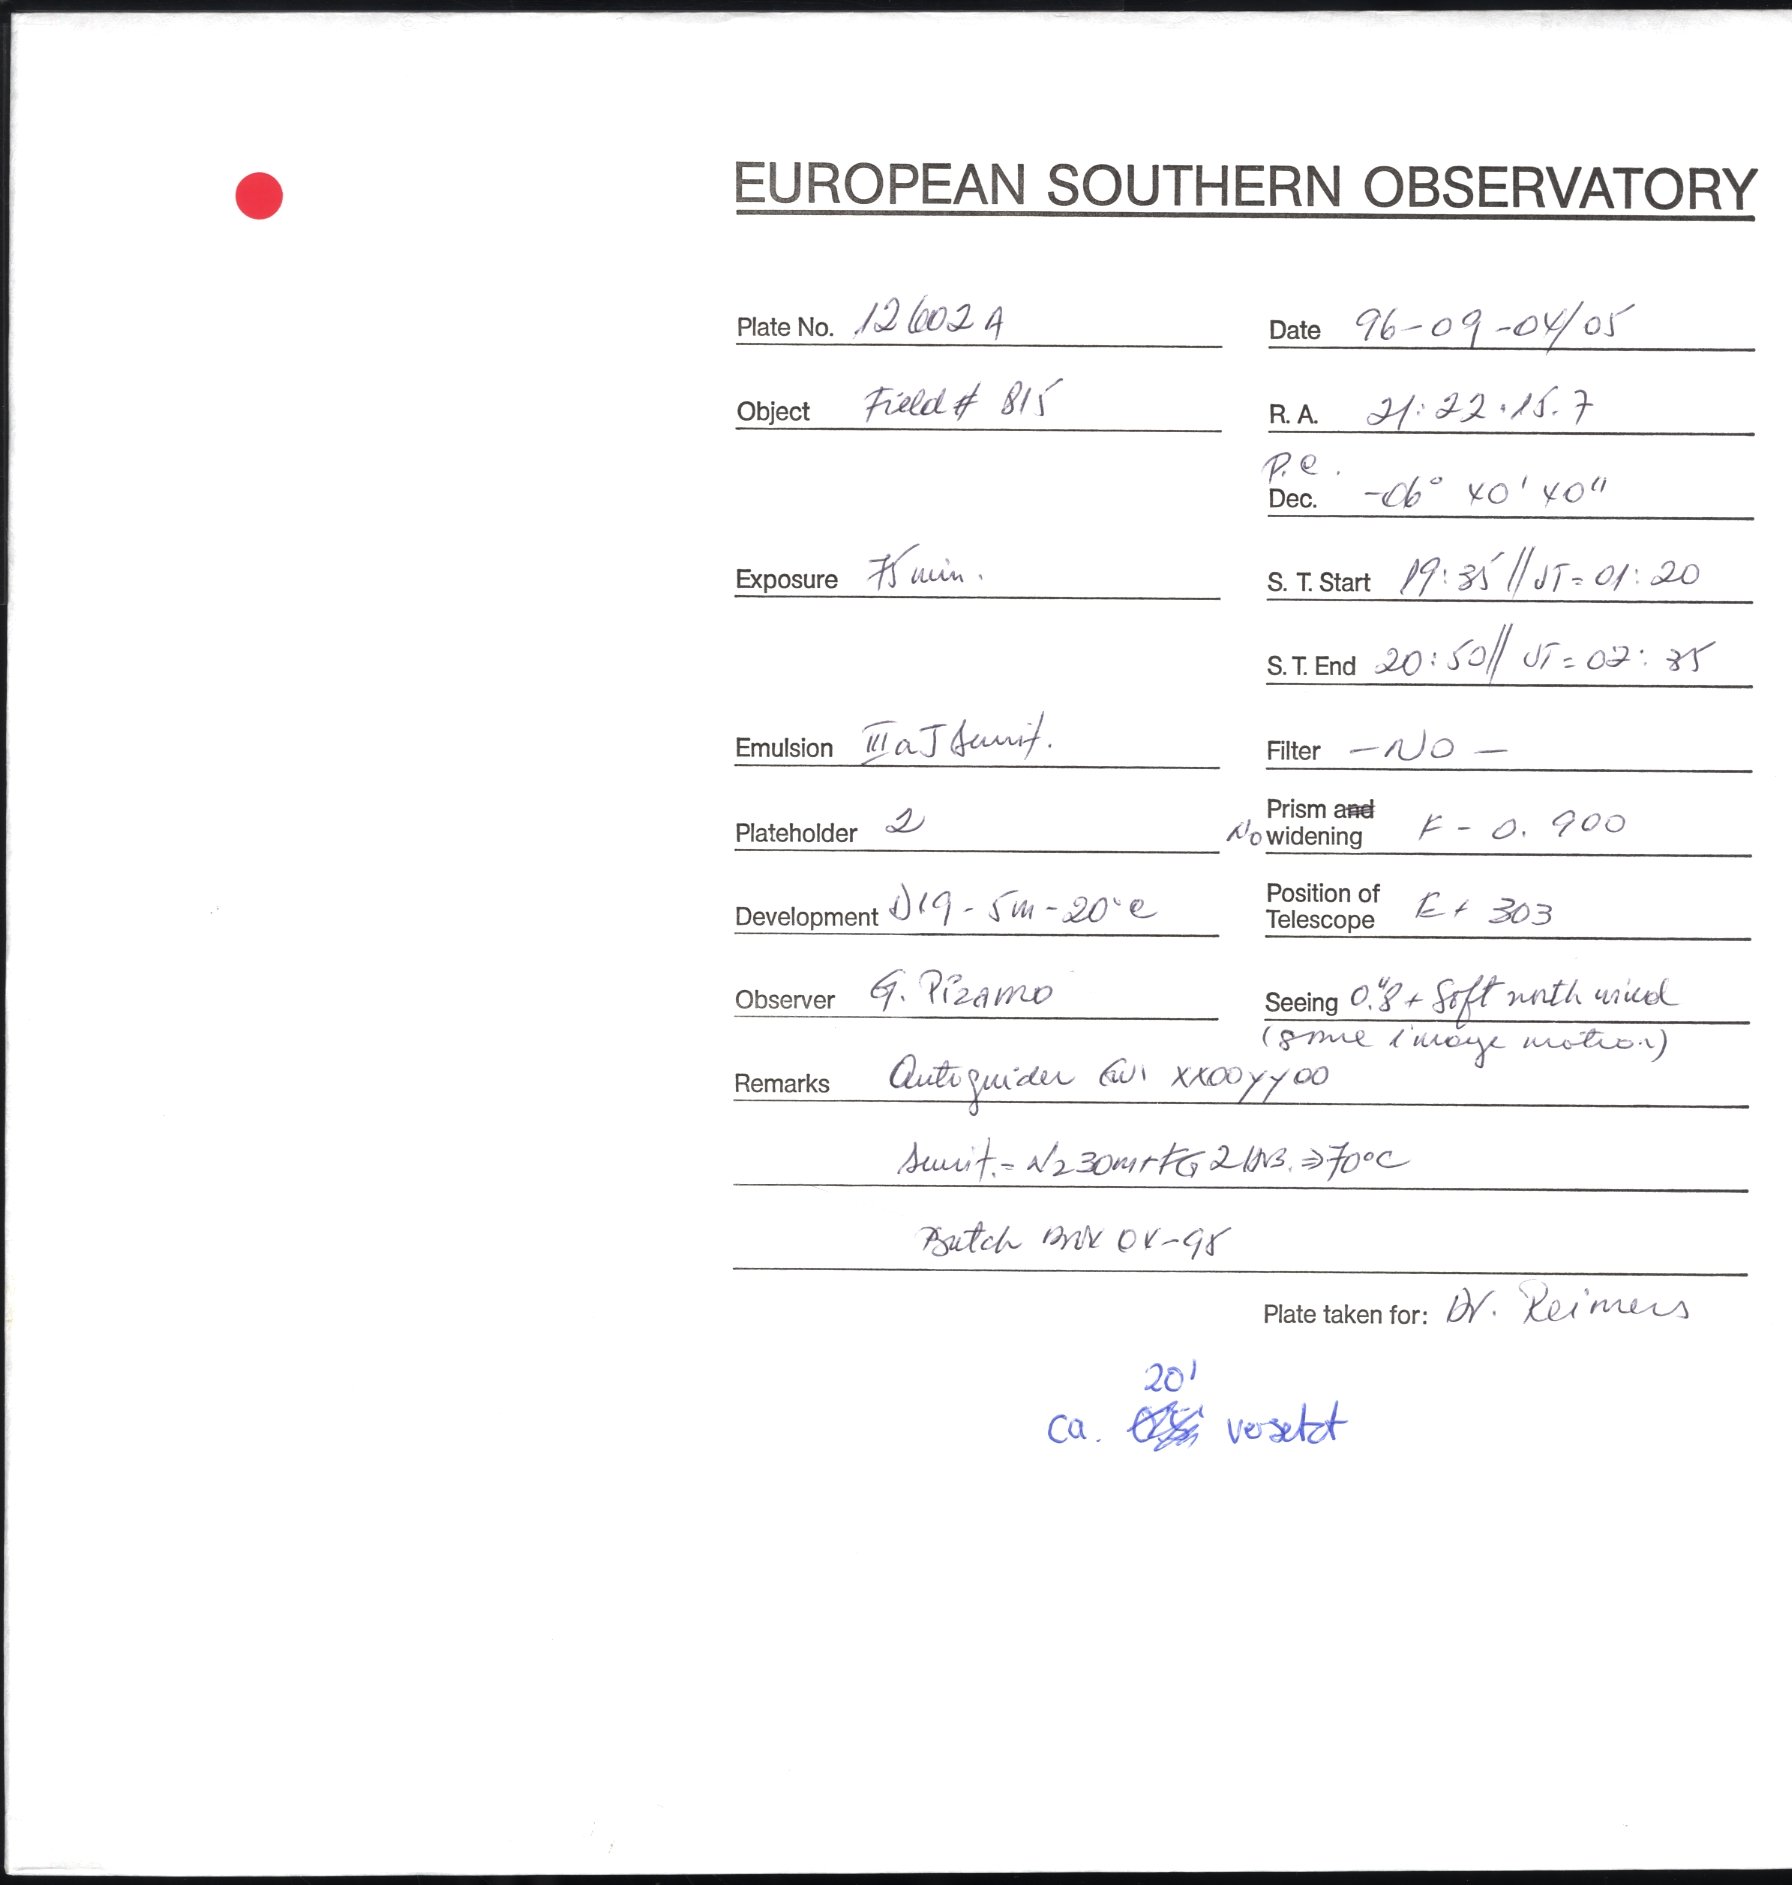 EUROPEAN SOUTHERN OBSERVATORY
Plate No. 12602A Date 96-09-04/05
Object Field # 815 R. A. 21:22.15.7
P.C.
Dec. -06° 40' 40"
Exposure 75 min. S. T. Start 19:35 // UT= 01:20
S. T. End 20:50 // UT= 02:35
Emulsion IIIaJ Sensit. Filter - NO -
Plateholder 2 No Prism and widening - 0.900
Development D19 - 5m - 20°C Position of Telescope E + 303
Observer G. Pizarro Seeing 0."8 + Soft north wind
(some image motion)
Remarks Autoguider XX00YY00
Sensit. = N2 30m + FG 2 ⇒ 70°C
Batch
Plate taken for: Dr. Reimers
20'
ca. versetzt